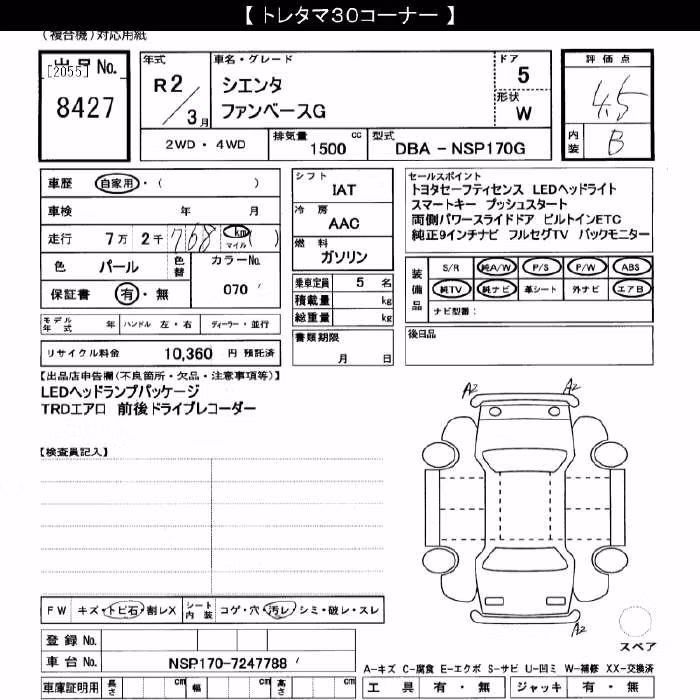 【 トレタマ30コーナー 】
(複合機)対応用紙
出品 No.
[2055]
8427
年式
R2/3月
車名・グレード
シエンタ
ファンベースG
ドア
5
形状
W
評価点
4.5
内装
B
2WD・4WD
排気量 1500 cc
型式 DBA - NSP170G
車歴 自家用・( )
車検 年 月
走行 7万 2千 768 km マイル ( )
色 パール 色替 カラーNo. 070
保証書 有・無
モデル年式 年 ハンドル 左・右 ディーラー・並行
リサイクル料金 10,360 円 預託済
シフト IAT
冷房 AAC
燃料 ガソリン
乗車定員 5 名
積載量 kg
総重量 kg
書類期限
月 日
セールスポイント
トヨタセーフティセンス LEDヘッドライト
スマートキー プッシュスタート
両側パワースライドドア ビルトインETC
純正9インチナビ フルセグTV バックモニター
装備品
S/R 純A/W P/S P/W ABS
純TV 純ナビ 革シート 外ナビ エアB
ナビ型番:
後日品
【出品店申告欄(不良箇所・欠品・注意事項等)】
LEDヘッドランプパッケージ
TRDエアロ 前後ドライブレコーダー
【検査員記入】
A2 A2
A2
スペア
FW キズ・トビ石・割レX シート内装 コゲ・穴・汚レ・シミ・破レ・スレ
登録 No.
車台 No. NSP170-7247788
車庫証明用 長さ cm 幅 cm 高さ cm
A-キズ C-腐食 E-エクボ S-サビ U-凹ミ W-補修 XX-交換済
工具 有・無 ジャッキ 有・無